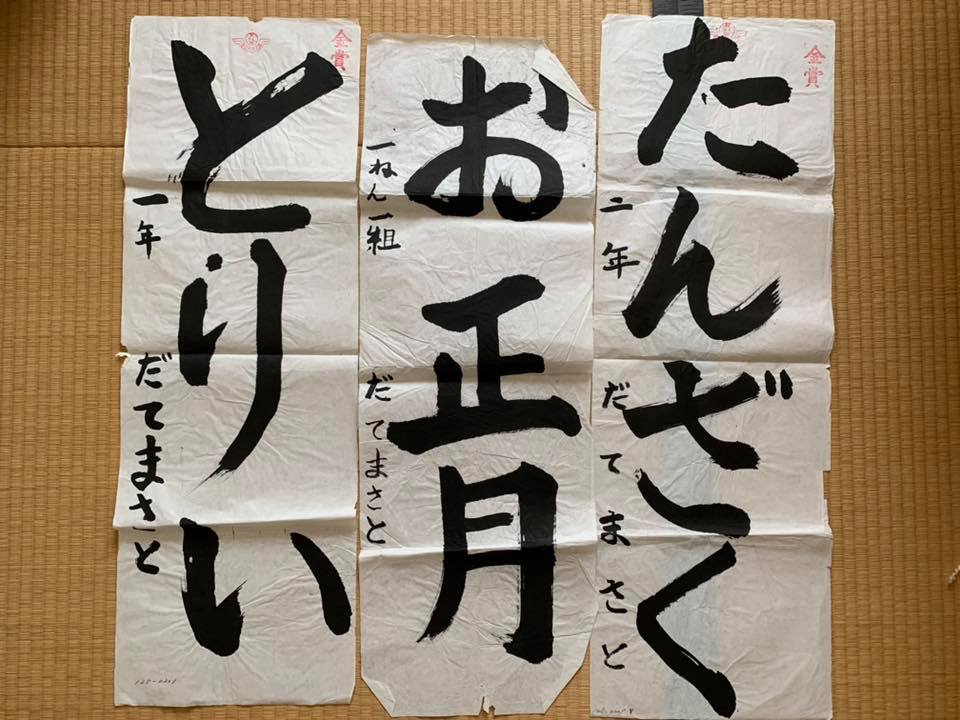 たんざく
二年 だてまさと
金賞
お正月
一ねん一組 だてまさと
とりい
一年 だてまさと
金賞